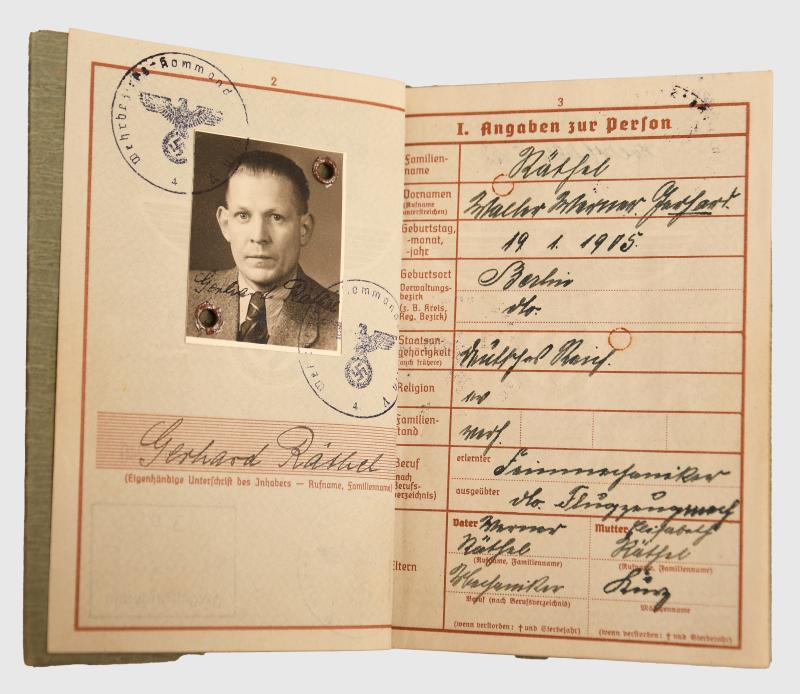 2
Wehrbezirks-Kommand
4
Gerhard Räthel
Kommand
4
Gerhard Räthel
(Eigenhändige Unterschrift des Inhabers — Rufname, Familienname)
3
I. Angaben zur Person
Familien-
name
Räthel
Vornamen
(Rufname
unterstreichen)
Walter Werner Gerhard.
Geburtstag,
-monat,
-jahr
19 1. 1905.
Geburtsort
Verwaltungs-
bezirk
(z. B. Kreis,
Reg. Bezirk)
Berlin
do.
Staatsan-
gehörigkeit
(auch frühere)
Deutsches Reich.
Religion
ev
Familien-
stand
verh.
Beruf
nach
Berufs-
verzeichnis)
erlernter
Feinmechaniker
ausgeübter
do. Flugzeugmech
Eltern
Vater Werner
Räthel
(Rufname, Familienname)
Mechaniker
Beruf (nach Berufsverzeichnis)
(wenn verstorben: † und Sterbejahr)
Mutter Elisabeth
Räthel
(Rufname, Familienname)
Kurz
Mädchenname
(wenn verstorben: † und Sterbejahr)